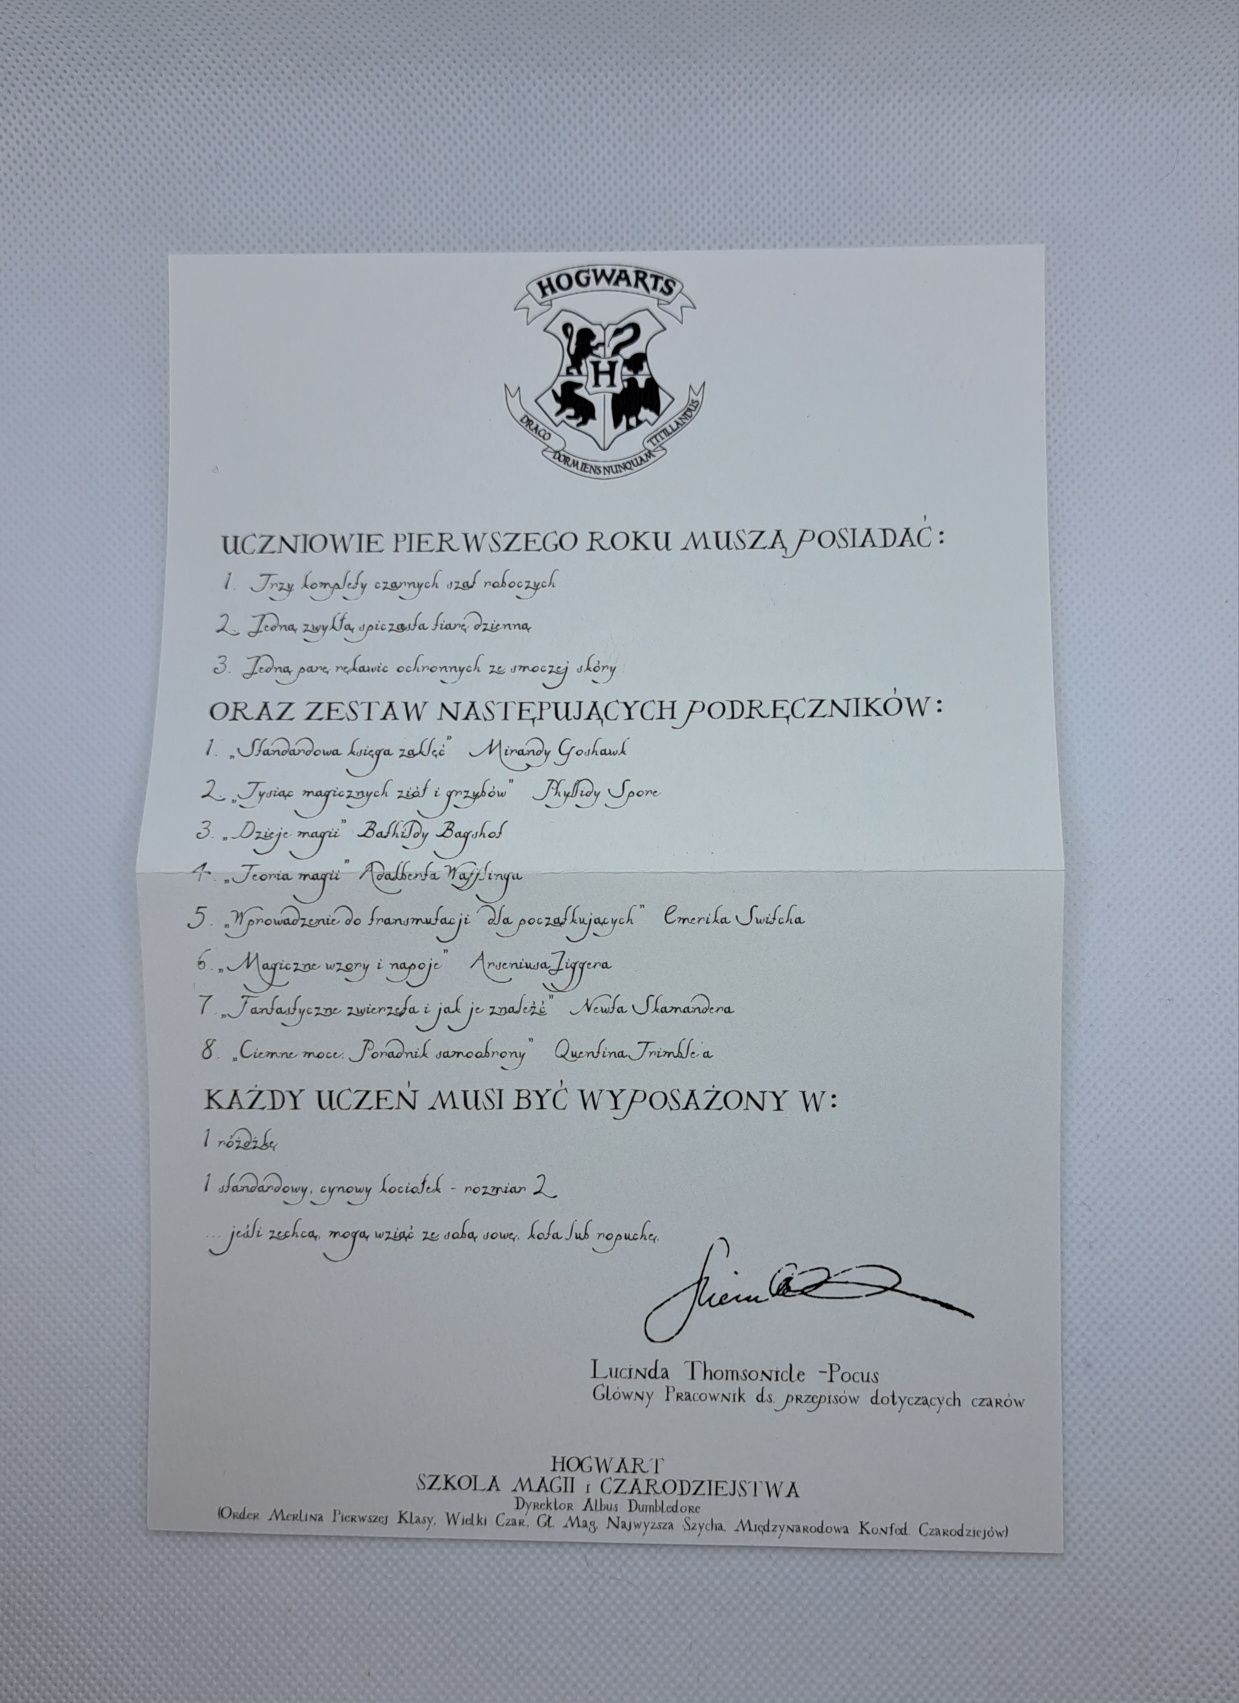 HOGWARTS
H
DRACO DORMIENS NUNQUAM TITILLANDUS
UCZNIOWIE PIERWSZEGO ROKU MUSZĄ POSIADAĆ:
1. Trzy komplety czarnych szat roboczych
2. Jedną zwykłą spiczasta tiarę dzienną
3. Jedną parę rękawic ochronnych ze smoczej skóry
ORAZ ZESTAW NASTĘPUJĄCYCH PODRĘCZNIKÓW:
1. „Standardowa księga zaklęć" Mirandy Goshawk
2. „Tysiąc magicznych ziół i grzybów" Phyllidy Spore
3. „Dzieje magii" Bathildy Bagshot
4. „Teoria magii" Adalberta Wafflinga
5. „Wprowadzenie do transmutacji dla początkujących" Emerika Switcha
6. „Magiczne wzory i napoje" Arseniusa Jiggera
7. „Fantastyczne zwierzęta i jak je znaleźć" Newta Skamandera
8. „Ciemne moce. Poradnik samoobrony" Quentina Trimble'a
KAŻDY UCZEŃ MUSI BYĆ WYPOSAŻONY W:
1 różdżkę
1 standardowy, cynowy kociołek - rozmiar 2
... jeśli zechcą, mogą wziąć ze sobą sowę, kota lub ropuchę.
Lucinda Thomsonicle -Pocus
Główny Pracownik ds. przepisów dotyczących czarów
HOGWART
SZKOLA MAGII i CZARODZIEJSTWA
Dyrektor Albus Dumbledore
(Order Merlina Pierwszej Klasy, Wielki Czar., Gł. Mag, Najwyzsza Szycha, Międzynarodowa Konfed. Czarodziejów)